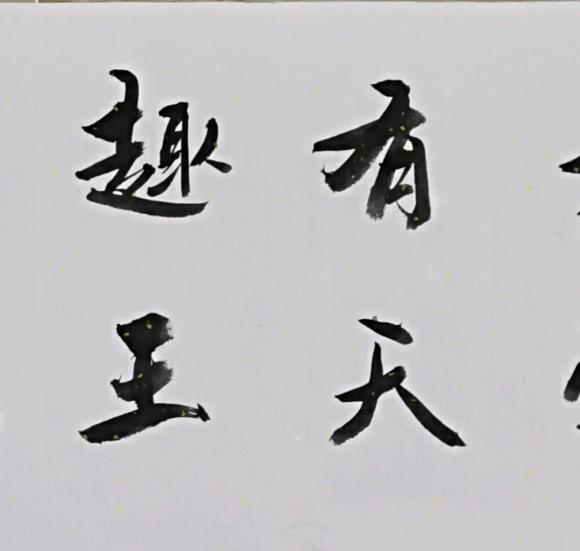 有趣
天王